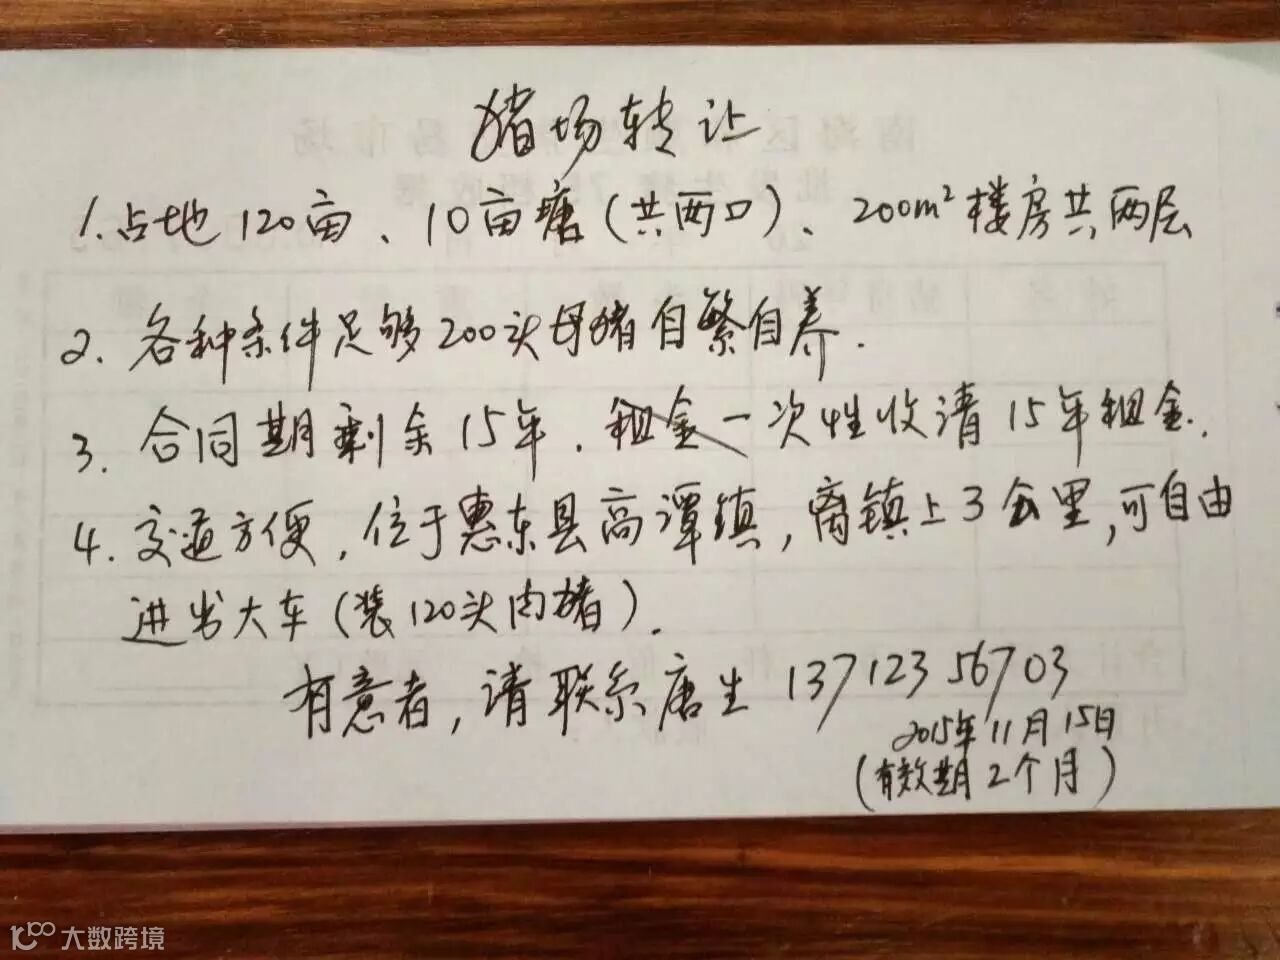 猪场转让
1.占地120亩、10亩塘(共两口)、200m²楼房共两层
2.各种条件足够200头母猪自繁自养.
3.合同期剩余15年.租金一次性收清15年租金.
4.交通方便,位于惠东县高谭镇,离镇上3公里,可自由
进出大车(装120头肉猪).
有意者,请联系唐生 13712356703
2015年11月15日
(有效期2个月)
大数跨境